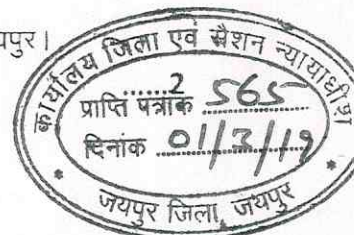 यपुर।
कार्यालय जिला एवं सैशन न्यायाधीश
2
प्राप्ति पत्रांक 565
दिनांक 01/3/19
* जयपुर जिला, जयपुर *